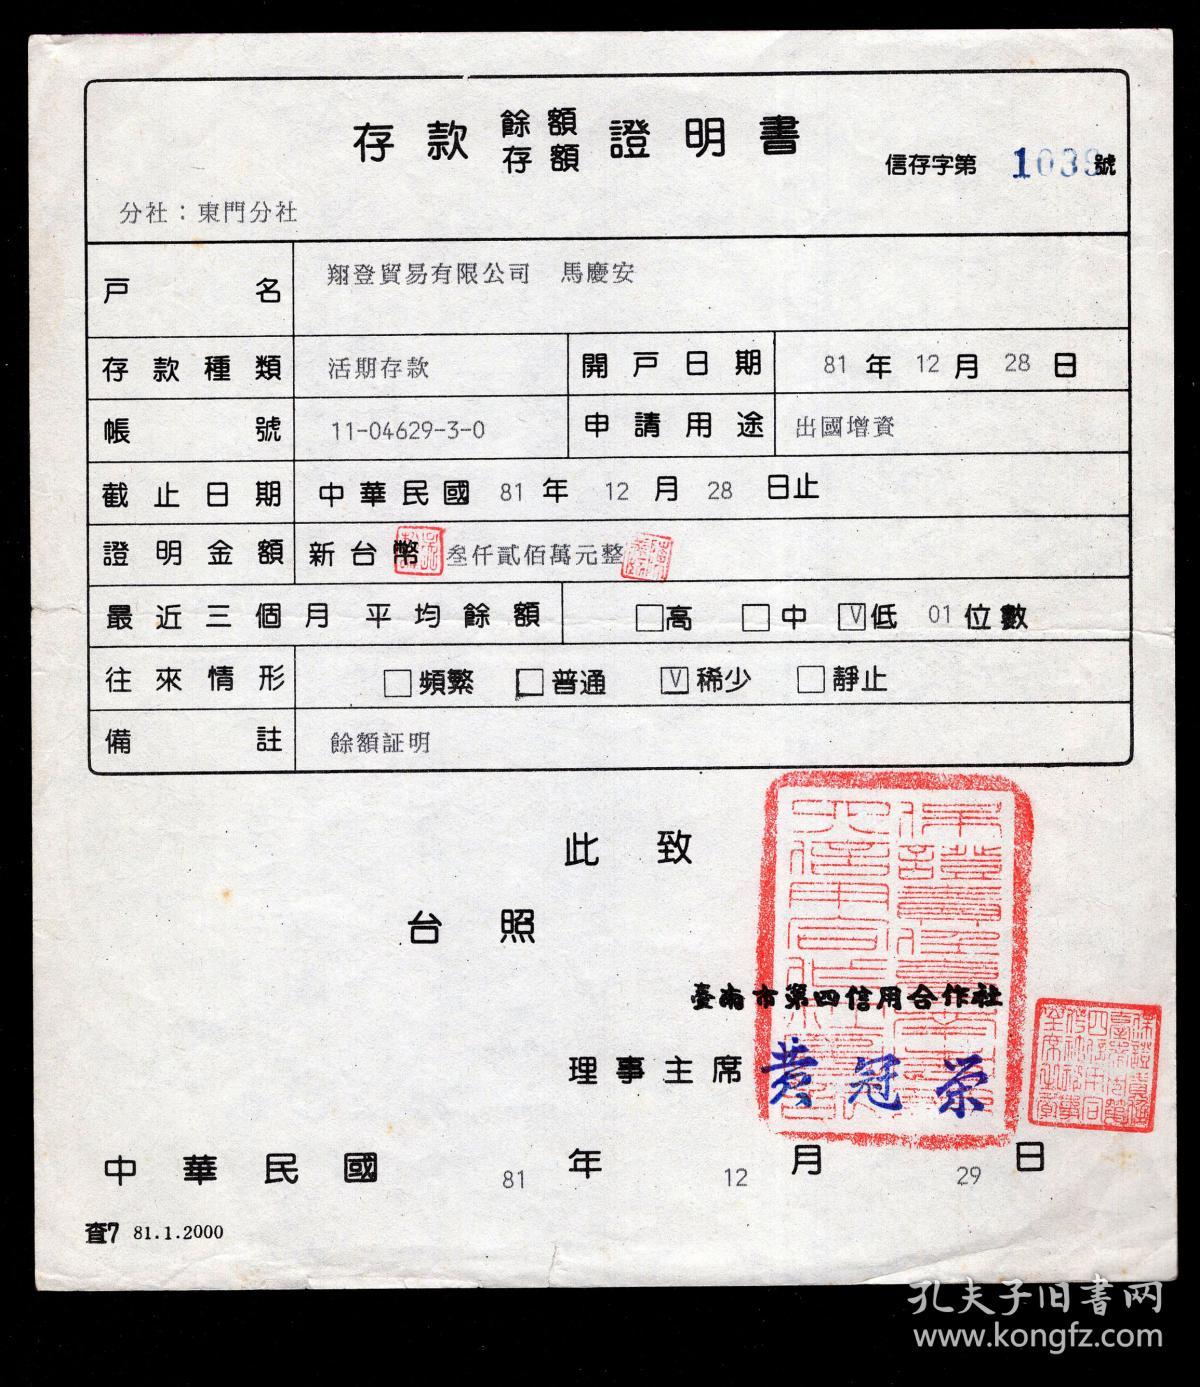 存款餘額存額證明書
信存字第 1039號
分社：東門分社
戶名 翔登貿易有限公司 馬慶安
存款種類 活期存款 開戶日期 81年12月28日
帳號 11-04629-3-0 申請用途 出國增資
截止日期 中華民國 81年12月28日止
證明金額 新台幣 叁仟貳佰萬元整
最近三個月平均餘額 □高 □中 V低 01位數
往來情形 □頻繁 □普通 V稀少 □靜止
備註 餘額証明
此致
台照
臺南市第四信用合作社
理事主席 黄冠荣
中華民國 81年12月29日
查7 81.1.2000
孔夫子旧書网
www.kongfz.com